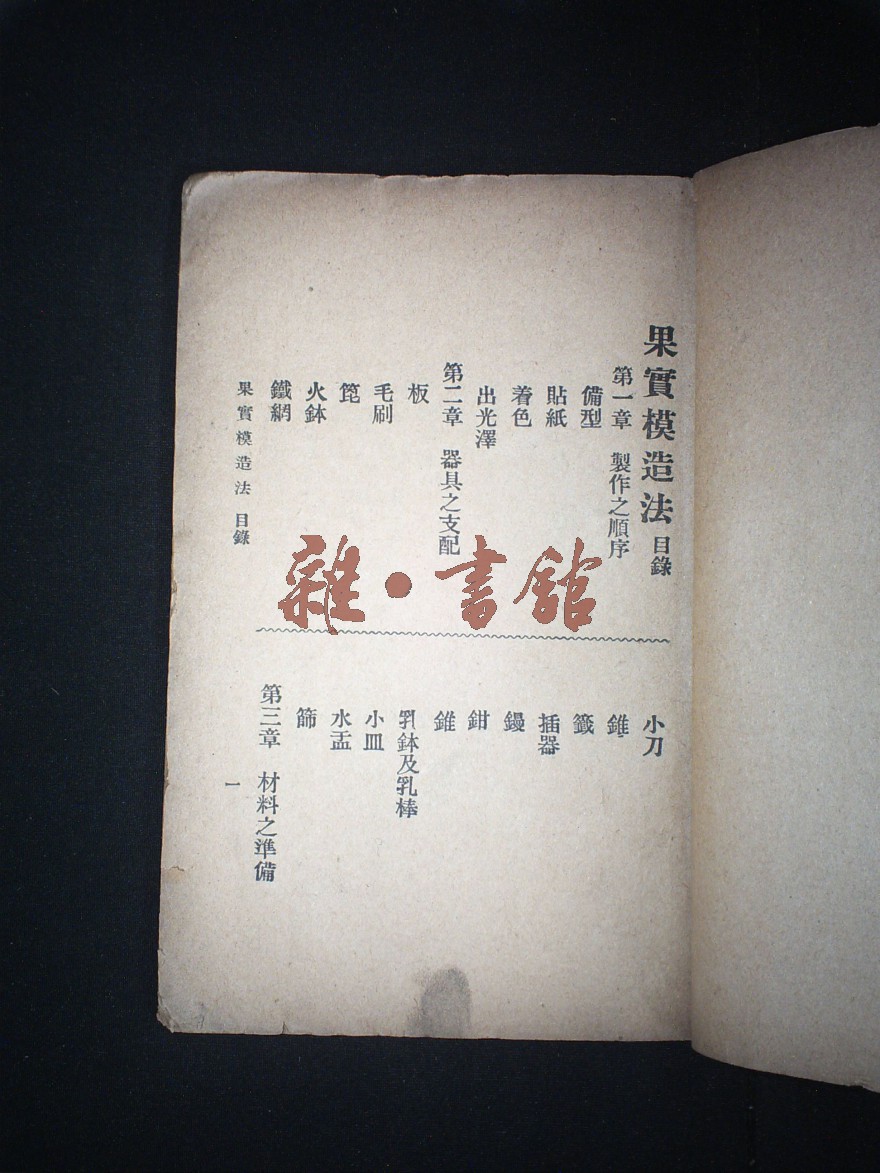 果實模造法 目錄
第一章 製作之順序
備型
貼紙
着色
出光澤
第二章 器具之支配
板
毛刷
箆
火鉢
鐵網
小刀
錐
籤
插器
鏝
鉗
錐
乳鉢及乳棒
小皿
水盂
篩
第三章 材料之準備
果實模造法 目錄
一
雜·書館